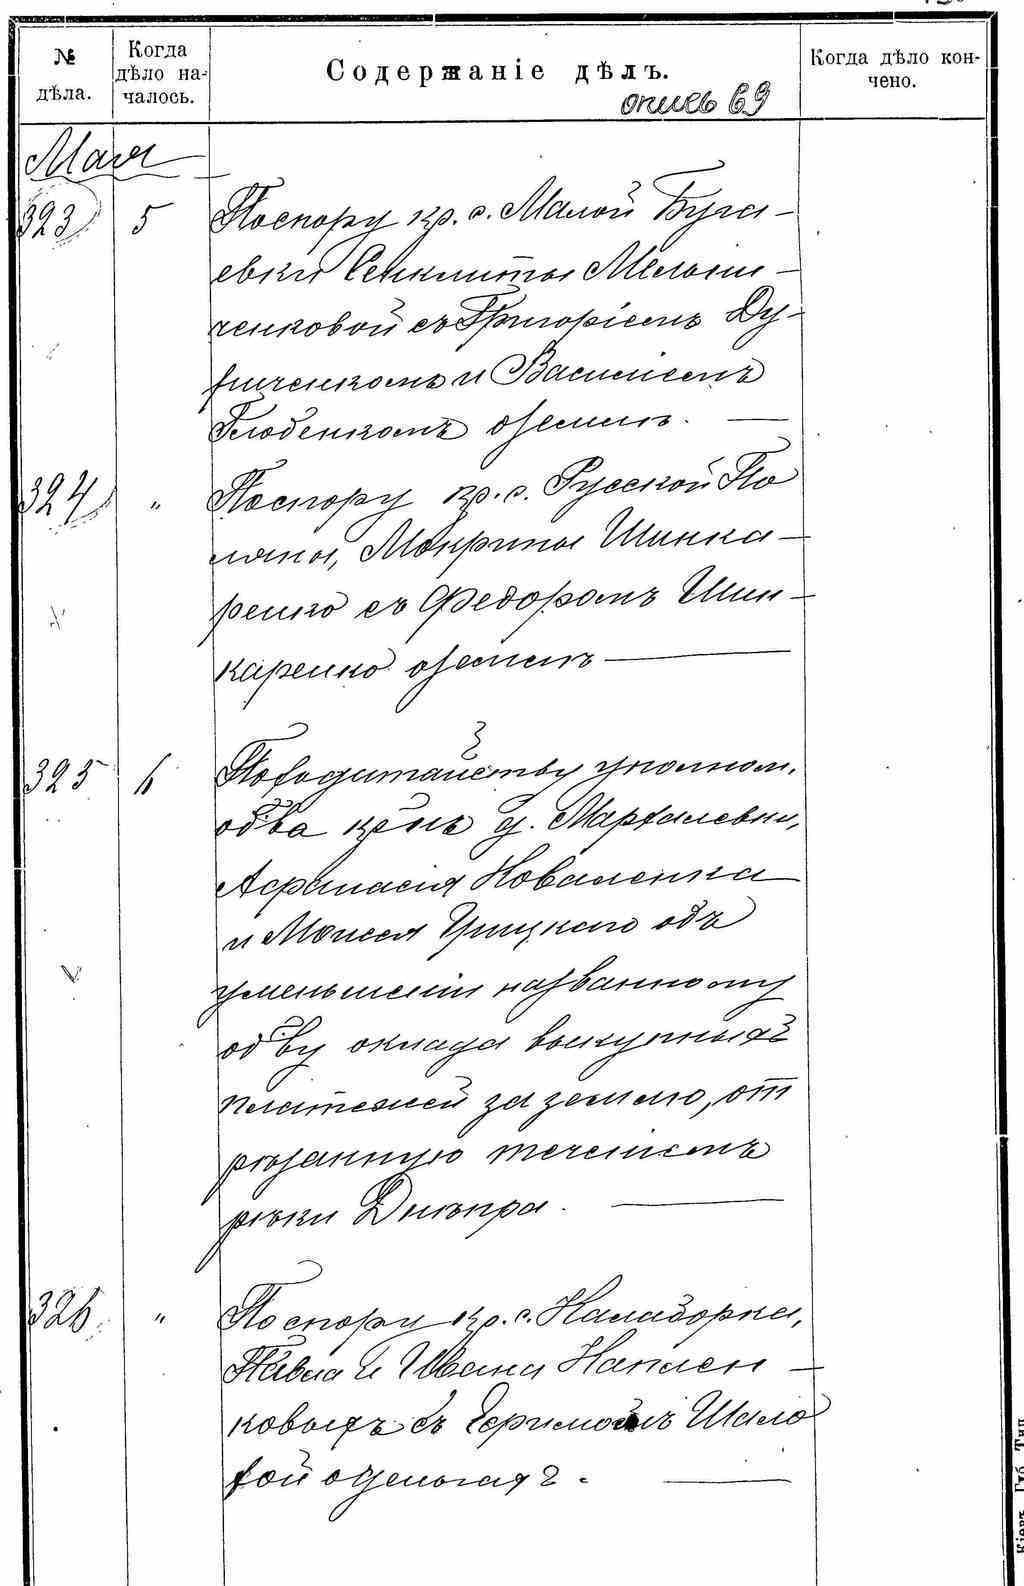 № дѣла.
Когда дѣло началось.
Содержаніе дѣлъ.
Когда дѣло кончено.
опись 69
Мая
323 5 По спору кр. с. Малой Буга-
евки Сенклиты Мельни-
ченковой съ Григоріемъ Ду-
ченкомъ и Василіемъ
о земль.
324 " По спору кр. с. Русской По
ляны, Мокрины Шинка-
ренко съ Федоромъ Шин-
каренко о земль
325 6 По ходатайству уполном.
об-ва кр-нъ д.
Афанасія Коваленка
и Моисея Грицкаго объ
уменьшеніи названному
об-ву оклада выкупныхъ
платежей за землю, от
рѣзанную теченіемъ
рѣки Днѣпра.
326 " По спору кр. с.
Павла и Ивана
ковыхъ съ Шало
вой о деньгахъ.
Кіевъ. Губ. Тип.